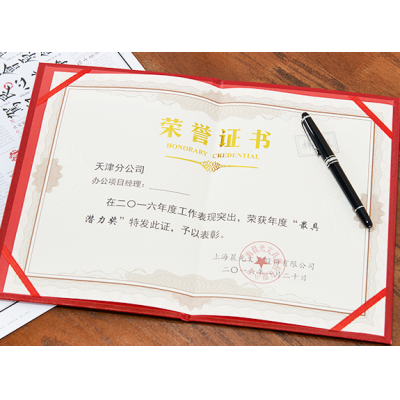 荣誉证书
HONORARY CREDENTIAL
天津分公司
办公项目经理：
在二〇一六年度工作表现突出，荣获年度“最具
潜力奖”特发此证，予以表彰。
上海晨光文具 有限公司
二〇一六年 月二十日